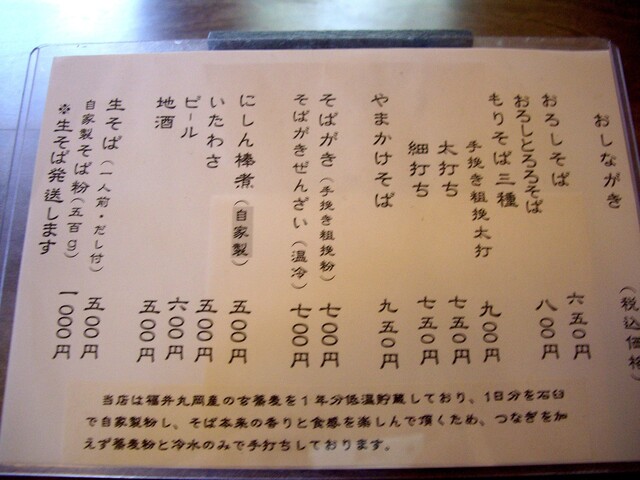 おしながき (税込価格)
おろしそば 六五〇円
おろしとろろそば 八〇〇円
もりそば三種
手挽き粗挽太打 九〇〇円
太打ち 七五〇円
細打ち 七五〇円
やまかけそば 九五〇円
そばがき(手挽き粗挽粉) 七〇〇円
そばがきぜんざい(温冷) 七〇〇円
にしん棒煮(自家製) 五〇〇円
いたわさ 五〇〇円
ビール 六〇〇円
地酒 五〇〇円
生そば(一人前・だし付) 五〇〇円
自家製そば粉(五百g) 一〇〇〇円
※生そば発送します
当店は福井丸岡産の玄蕎麦を1年分低温貯蔵しており、1日分を石臼
で自家製粉し、そば本来の香りと食感を楽しんで頂くため、つなぎを加
えず蕎麦粉と冷水のみで手打ちしております。